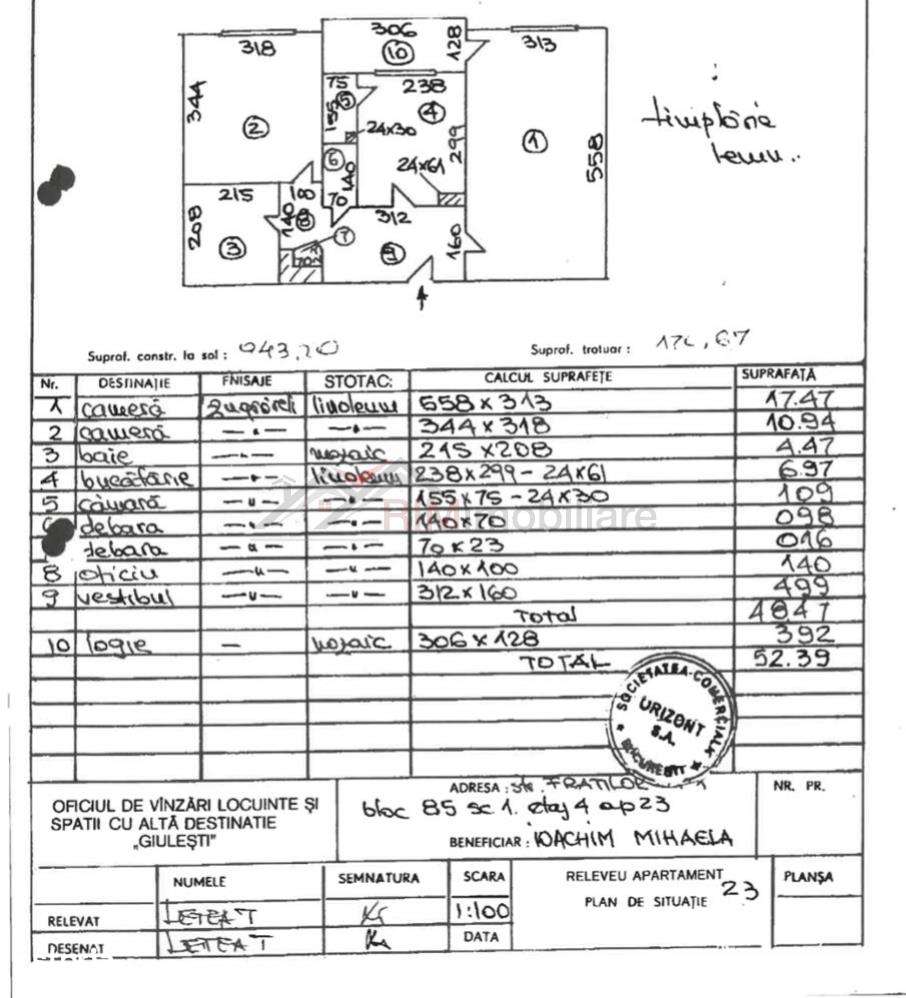 306
318
10
128
313
344
75
238
5
155
4
2
24x30
299
1
558
6
24x61
140
215
18
70
208
140
8
312
3
7
70
23
9
160
Suprof. constr. la sol : 943,20
Suprof. trotuar :
Nr. DESTINAȚIE FNISAJE STOTAC: CALCUL SUPRAFEȚE SUPRAFATĂ
1 cameră zugrăveli linoleum 558 x 313 17.47
2 cameră —"— —"— 344 x 318 10.94
3 baie —"— mozaic 215 x 208 4.47
4 bucătărie —"— linoleum 238 x 299 - 24 x 61 6.97
5 cămară —"— —"— 155 x 75 - 24 x 30 109
debara —"— —"— 140 x 70 098
debara —"— —"— 70 x 23 016
8 oficiu —"— —"— 140 x 100 140
9 vestibul —"— —"— 312 x 160 499
Total 48.47
10 logie — mozaic 306 x 128 392
TOTAL 52.39
RIMimobiliare
SOCIETATEA COMERCIALĂ
URIZONT
S.A.
* BUCURESTI *
OFICIUL DE VÎNZĂRI LOCUINTE ȘI
SPATII CU ALTĂ DESTINATIE
„GIULEȘTI"
ADRESA : str. FRATILOR
bloc 85 sc 1. etaj 4 ap 23
BENEFICIAR : IOACHIM MIHAELA
NR. PR.
NUMELE SEMNATURA SCARA RELEVEU APARTAMENT 23 PLANȘA
PLAN DE SITUAȚIE
RELEVAT LETEA T 1:100
DESENAT LETEA T DATA